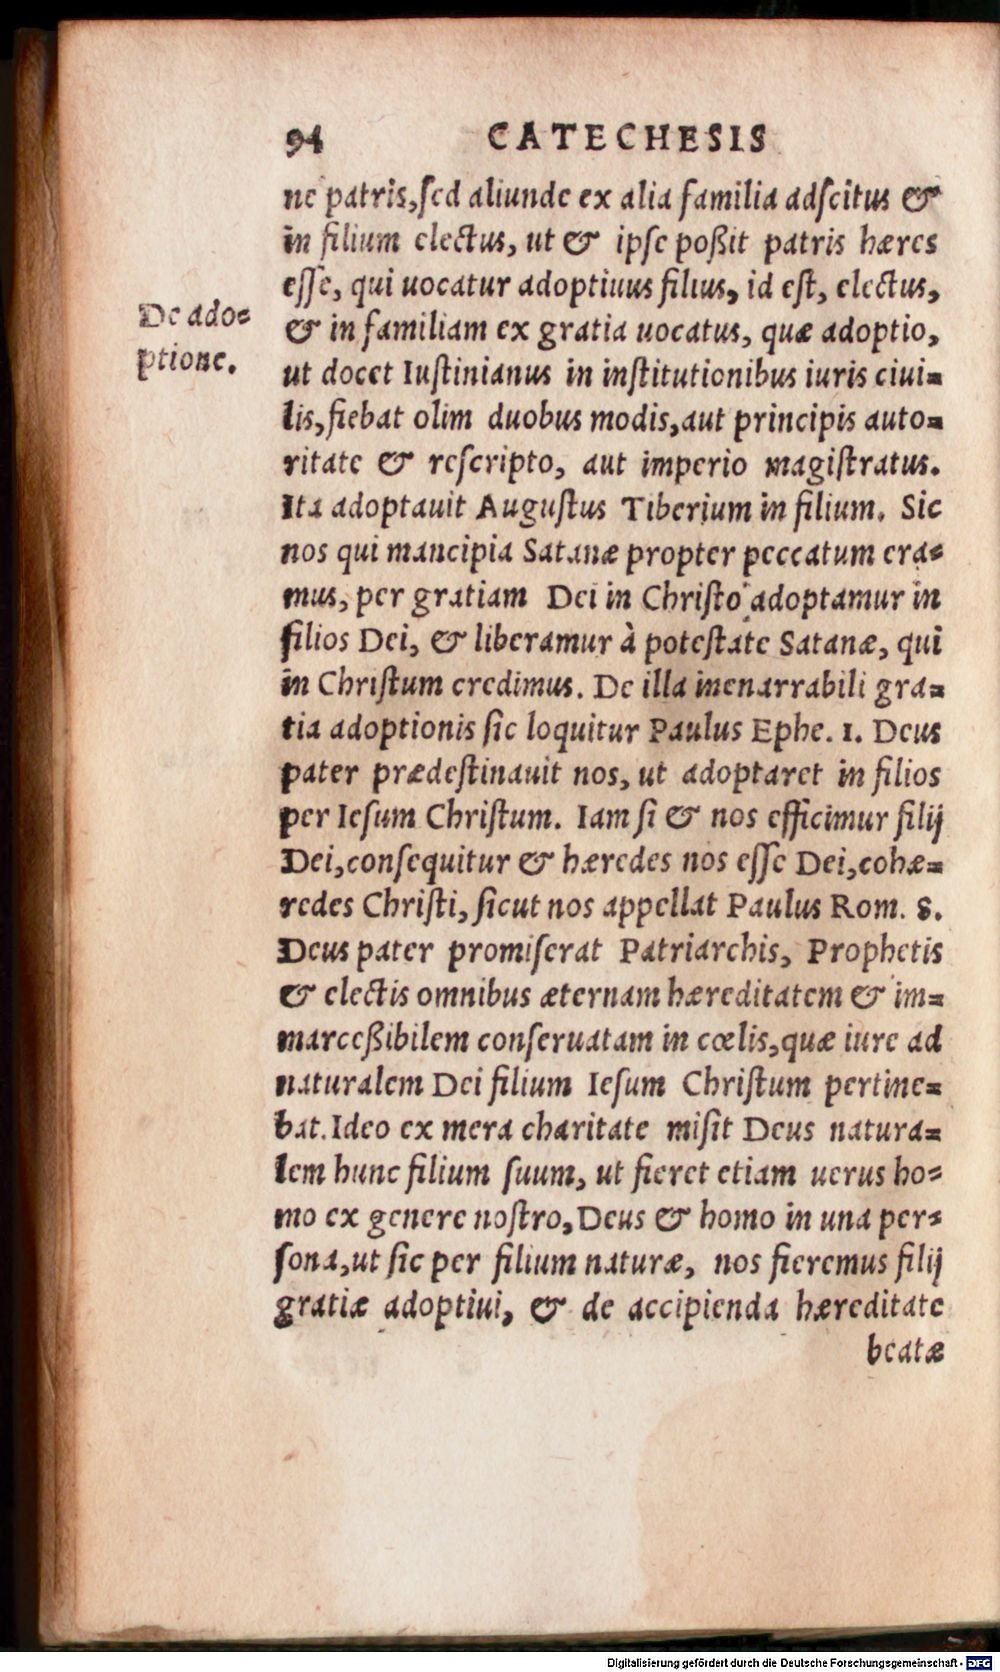 94 CATECHESIS
ne patris, sed aliunde ex alia familia adscitus &
in filium electus, ut & ipse poßit patris hæres
esse, qui uocatur adoptiuus filius, id est, electus,
& in familiam ex gratia uocatus, quæ adoptio,
De ado=
ptione.
ut docet Iustinianus in institutionibus iuris ciui=
lis, fiebat olim duobus modis, aut principis auto=
ritate & rescripto, aut imperio magistratus.
Ita adoptauit Augustus Tiberium in filium. Sic
nos qui mancipia Satanæ propter peccatum era=
mus, per gratiam Dei in Christo adoptamur in
filios Dei, & liberamur à potestate Satanæ, qui
in Christum credimus. De illa inenarrabili gra=
tia adoptionis sic loquitur Paulus Ephe. 1. Deus
pater prædestinauit nos, ut adoptaret in filios
per Iesum Christum. Iam si & nos efficimur filij
Dei, consequitur & hæredes nos esse Dei, cohæ=
redes Christi, sicut nos appellat Paulus Rom. 8.
Deus pater promiserat Patriarchis, Prophetis
& electis omnibus æternam hæreditatem & im=
marceßibilem conseruatam in cœlis, quæ iure ad
naturalem Dei filium Iesum Christum pertine=
bat. Ideo ex mera charitate misit Deus natura=
lem hunc filium suum, ut fieret etiam uerus ho=
mo ex genere nostro, Deus & homo in una per=
sona, ut sic per filium naturæ, nos fieremus filij
gratiæ adoptiui, & de accipienda hæreditate
beatæ
Digitalisierung gefördert durch die Deutsche Forschungsgemeinschaft - DFG